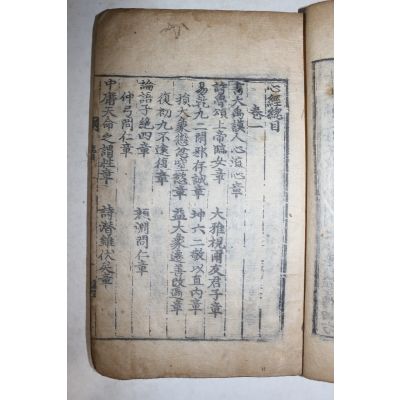 心經總目
卷一
書大禹謨人心道心章
詩魯頌上帝臨女章
大雅視爾友君子章
易乾九二閑邪存誠章
坤六二敬以直內章
損大象懲忿窒慾章
益大象遷善改過章
復初九不遠復章
論語子絶四章
顏淵問仁章
仲弓問仁章
中庸天命之謂性章
詩潛雖伏矣章